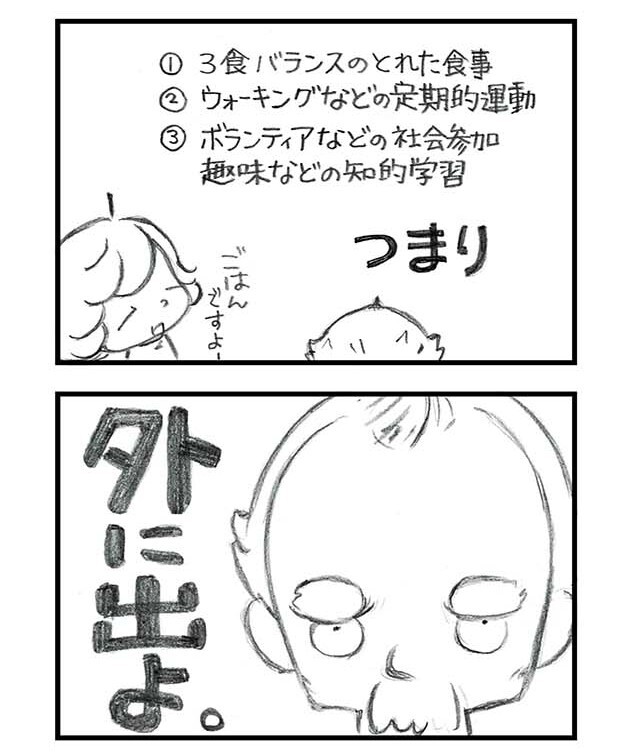 ① 3食バランスのとれた食事
② ウォーキングなどの定期的運動
③ ボランティアなどの社会参加
趣味などの知的学習
つまり
ごはん
ですよー
外に出よ。